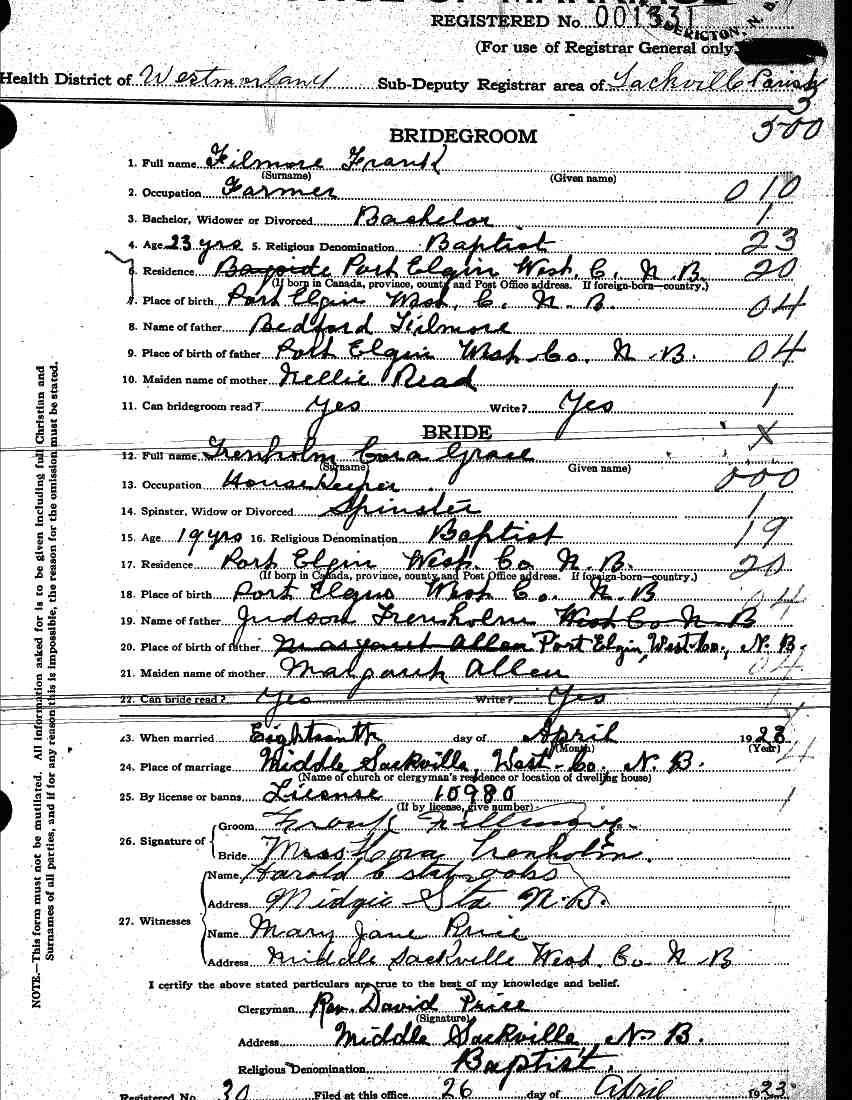 REGISTERED No. 001331
(For use of Registrar General only)
Health District of Westmorland Sub-Deputy Registrar area of Sackville Parish
3
500
BRIDEGROOM
1. Full name Filmore Frank
(Surname) (Given name)
2. Occupation Farmer 010
3. Bachelor, Widower or Divorced Bachelor 1
4. Age 23 yrs 5. Religious Denomination Baptist 23
6. Residence Bayside Port Elgin West. C. N. B. 20
(If born in Canada, province, county and Post Office address. If foreign-born—country.)
7. Place of birth Port Elgin West. C. N. B. 04
8. Name of father Bedford Filmore
9. Place of birth of father Port Elgin West Co. N. B. 04
10. Maiden name of mother Nellie Read
11. Can bridegroom read? Yes Write? Yes 1
BRIDE X
12. Full name Trenholm Cora Grace
(Surname) Given name)
13. Occupation Housekeeper 000
14. Spinster, Widow or Divorced Spinster 1
15. Age 19 yrs 16. Religious Denomination Baptist 19
17. Residence Port Elgin West. Co N. B. 20
(If born in Canada, province, county and Post Office address. If foreign-born—country.)
18. Place of birth Port Elgin West C. N. B 04
19. Name of father Judson Trenholm West Co N B
20. Place of birth of father Margaret Allen Port Elgin, West. Co., N. B.
21. Maiden name of mother Margaret Allen 04
22. Can bride read? Yes Write? Yes
23. When married Eighteenth day of April 1923
(Month) (Year)
24. Place of marriage Middle Sackville, West. Co. N. B. 4
(Name of church or clergyman's residence or location of dwelling house)
25. By license or banns License 10980 1
(If by license, give number)
26. Signature of Groom Frank Fillmore
Bride Miss Cora Trenholm.
27. Witnesses Name Harold E
Address Midgic Sta N. B.
Name Mary Jane Price
Address Middle Sackville West. Co. N. B
I certify the above stated particulars are true to the best of my knowledge and belief.
Clergyman Rev. David Price
(Signature)
Address Middle Sackville, N. B.
Religious Denomination Baptist.
Registered No. 30 Filed at this office 26 day of April 1923
NOTE.—This form must not be mutilated. All information asked for is to be given including full Christian and
Surnames of all parties, and if for any reason this is impossible, the reason for the omission must be stated.